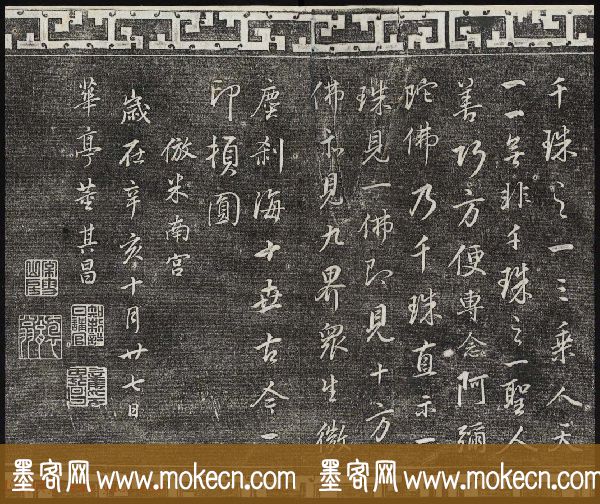 千珠之一三乘人天
一一無非千珠之一聖人
善巧方便專念阿彌
陀佛乃千珠直示一
珠見一佛即見十方
佛示見九界眾生微
塵剎海十世古今一
印頓圓
倣米南宮
歲在辛亥十月廿七日
華亭董其昌
墨客网 www.mokecn.com 墨客网 www.mokecn.com